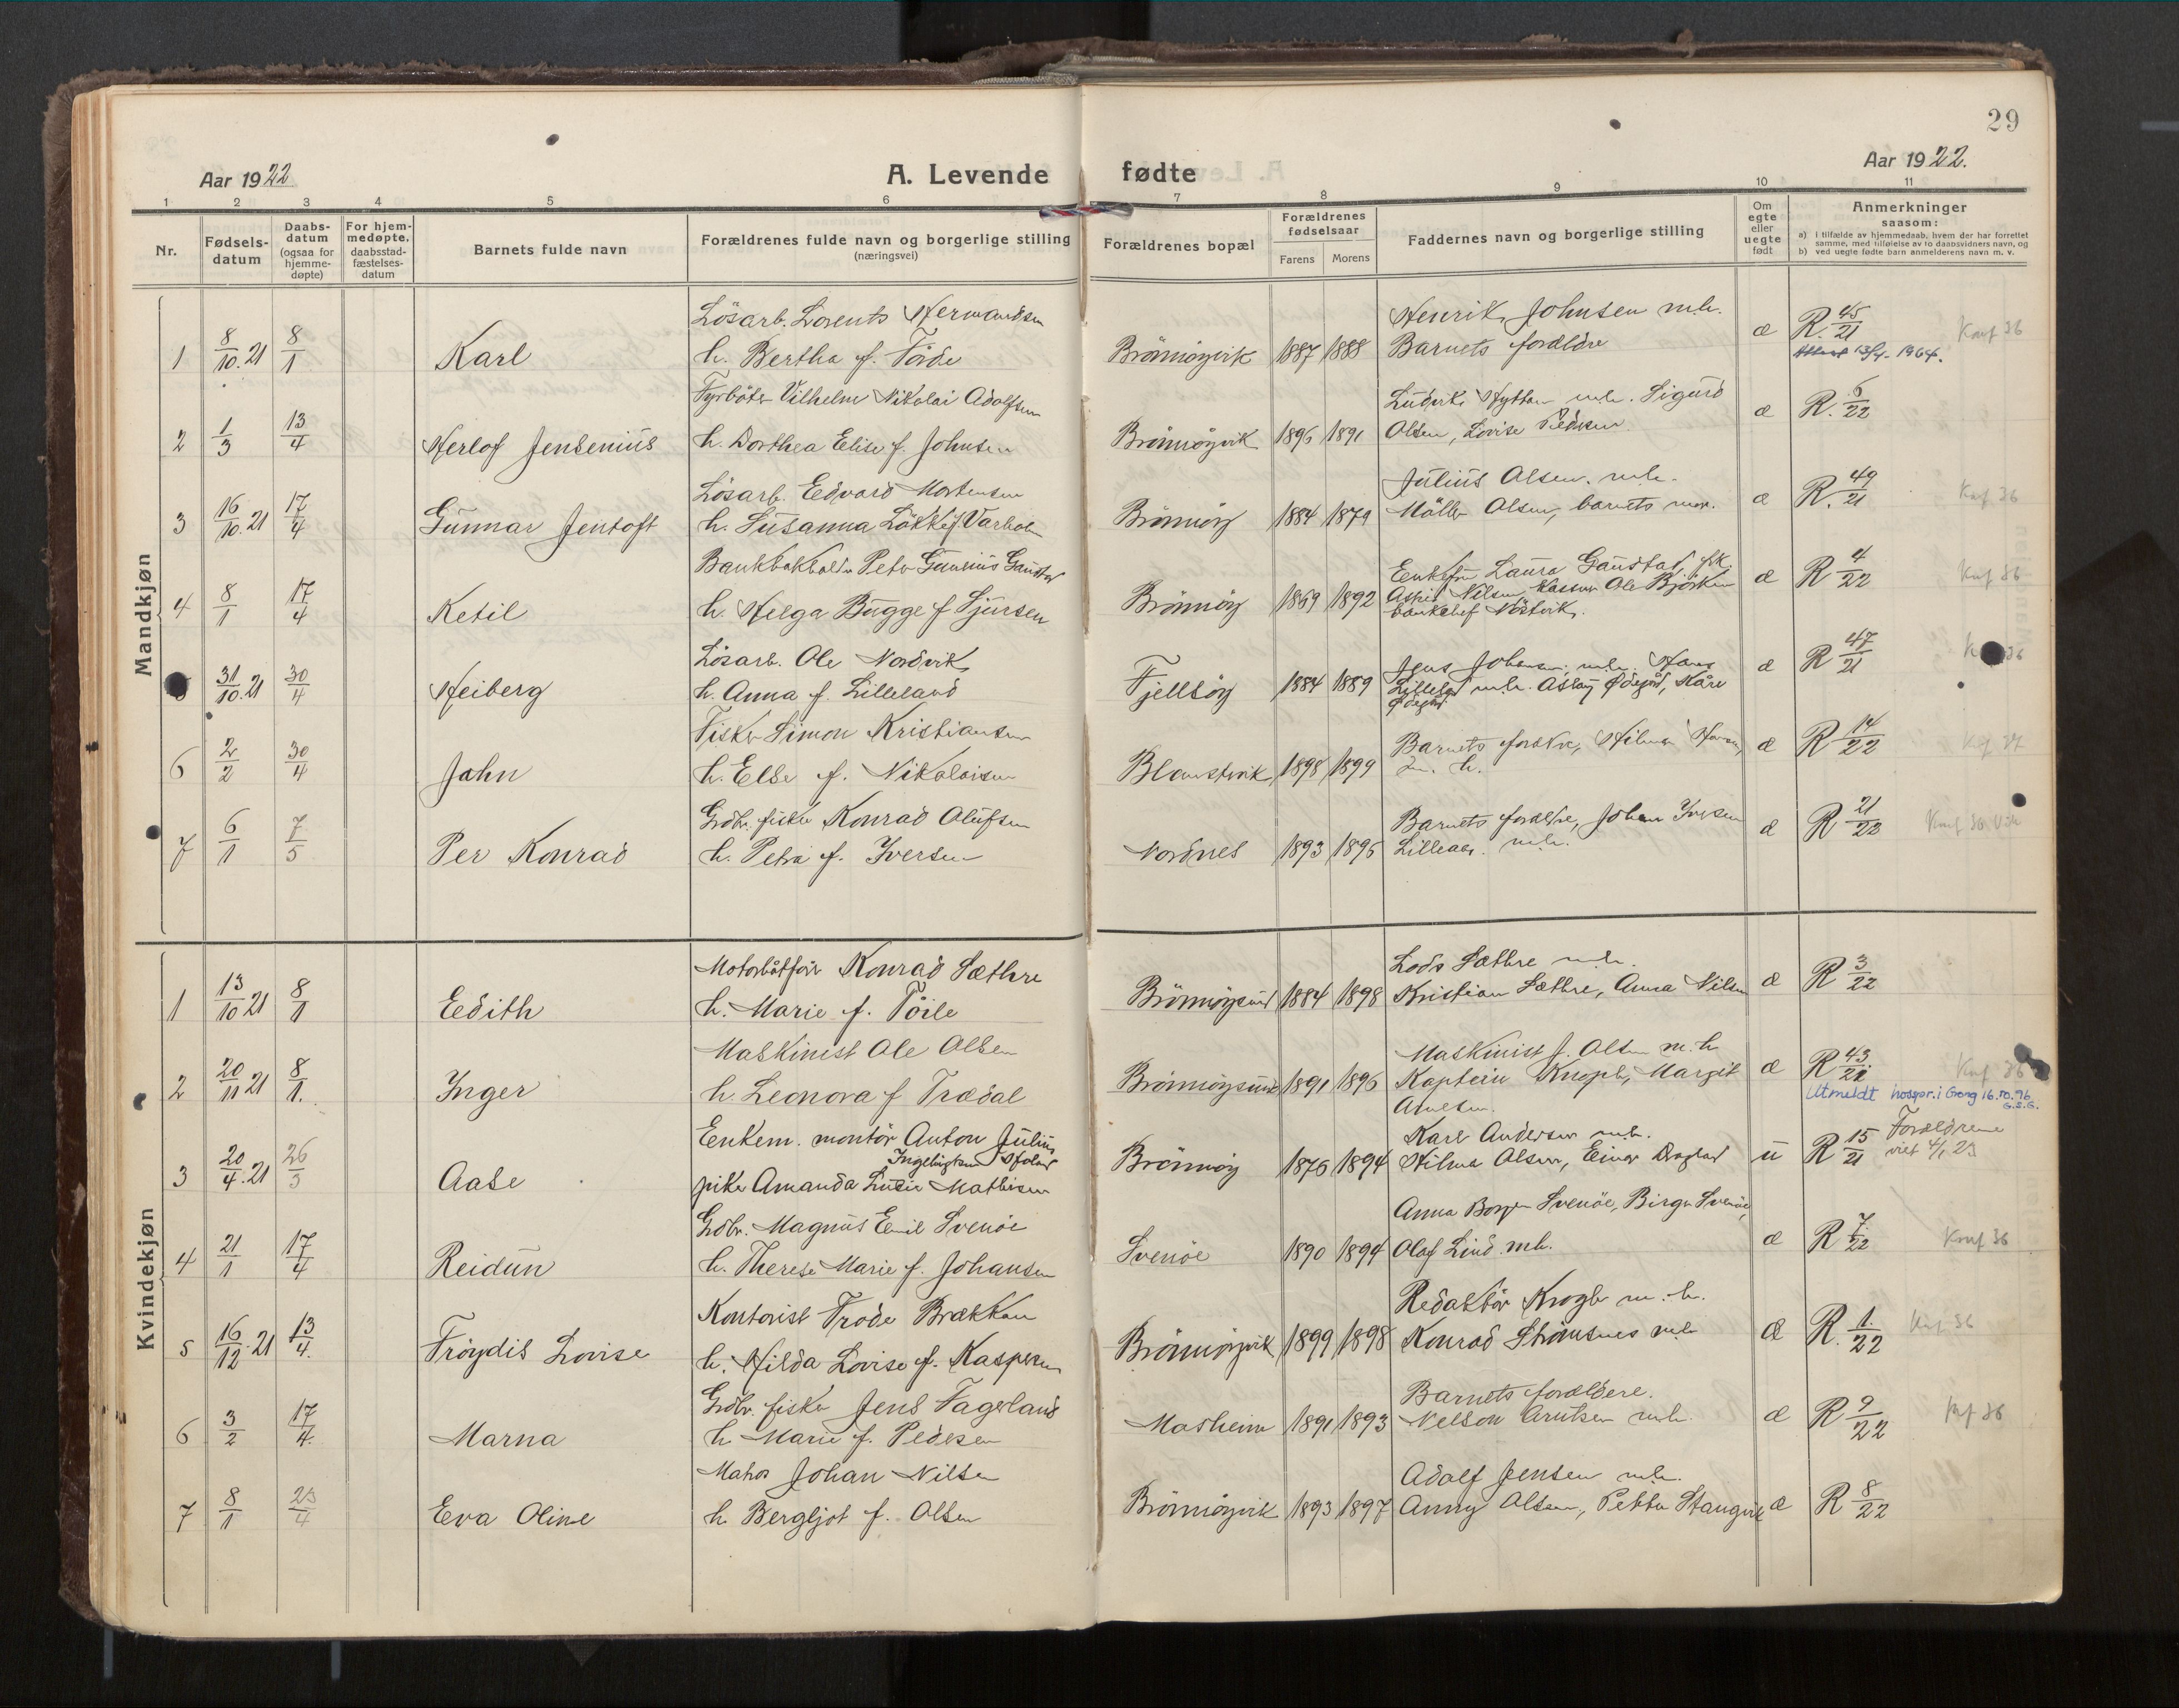 29
Aar 1922
A. Levende fødte
Aar 1922.
1 2 3 4 5 6 7 8 9 10 11
Nr.
Fødsels-
datum
Daabs-
datum
(ogsaa for
hjemme-
døpte)
For hjem-
medøpte,
daabsstad-
fæstelses-
datum
Barnets fulde navn
Forældrenes fulde navn og borgerlige stilling
(næringsvei)
Forældrenes bopæl
Forældrenes
fødselsaar
Farens Morens
Faddernes navn og borgerlige stilling
Om
egte
eller
uegte
født
Anmerkninger
saasom:
a) i tilfælde av hjemmedaab, hvem der har forrettet
samme, med tilføielse av to daabsvidners navn, og
b) ved uegte fødte barn anmelderens navn m. v.
Mandkjøn
Lösarb. Lorents Hermandsen
1 8/10.21 8/1 Karl h. Bertha f. Töide Brönnöyvik 1887 1888
Henrik Johnsen m.h.
Barnets forældre
æ R. 45/21 Konf 36
13/4-1964.
Fyrböter Vilhelm Nikolai Adolfsen
2 1/3 13/4 Herlof Jensenius h. Dorthea Elise f. Johnsen Brönnöyvik 1896 1891
Ludvik Hytten m.h. Sigurd
Olsen, Lovise Pedersen
æ R. 6/22
Lösarb. Edvard Mortensen
3 16/10.21 17/4 Gunnar Jentoft h. Susanna Lökke f. Varholm Brönnöy 1884 1879
Julius Olsen. m.h.
Möller Olsen, barnets mor.
æ R. 49/21 Konf 36
Bankbokholder Peter Gunerius Gaustad
4 8/1 17/4 Ketil h. Helga Bugge f Sjursen Brönnöy 1869 1892
Enkefru Laura Gaustad, frk.
Nilsen, Ole Bjørken
banksjef
æ R 4/22 Konf 36
Lösarb. Ole Nordvik
31/10.21 30/4 Heiberg h. Anna f. Lilleland Fjellsöy 1884 1889
Jens Johansen m.h. Hans
Lilleland m.h. Aslaug Ødegård, Kåre
Ødegård
æ R 47/21 36
Fisker Simon Kristiansen
6 2/2 30/4 John h. Else f. Nikolaisen 1898 1899
Barnets forældre, Hilmar Hansen
m. h.
æ R 14/22
Gdbr. fisker Konrad Olufsen
7 6/1 7/5 Per Konrad h. Petra f. Iversen Nordnes 1893 1895
Barnets forældre, Johan Iversen
m.h.
æ R 21/22 Konf 36
Kvindekjøn
Motorbåtförer Konrad Sæthre
1 13/10 21 8/1 Edith h. Marie f. Töile Brönnöysund 1884 1898
Lods Sæthre m.h.
Kristian Sæthre, Anna Nilsen
æ R 3/22
Maskinist Ole Olsen
2 20/11 21 8/1. Inger h. Leonora f Trædal Brönnöysund 1891 1896
Maskinist J. Olsen m.h
Kaptein Knoph, Margit
Arnesen.
æ R 43/21 Konf 36
Utmeldt hosspr. i Grong 16.10.96
G.S.G.
Enkem. montör Anton Julius
Ingebrigtsen
3 20/4.21 26/3 Aase pike Amanda Lusie Mathisen Brönnöy 1876 1894
Karl Andersen m.h.
Hilma Olsen, Einar
u R 15/21 Forældrene
viet 4/1 23
Gdbr. Magnus Emil Svenöe
4 21/1 17/4 Reidun h. Therese Marie f. Johansen Svenöe 1890 1894
Anna Borgen Svenöe, Birger Svenöe,
Olaf Lind m.h.
æ R 7./22 Konf 36
Kontorist Frode Brækkan
5 16/12.21 13/4. Fröydis Lovise h. Hilda Lovise f. Kaspersen Brönnöyvik 1899 1898
Redaktör Krogh m.h.
Konrad Strömsnes m.h
æ R. 1./22 Konf 36
Gdbr. fisker Jens Fagerland
6 3/2 17/4. Marna h. Marie f. Pedersen Mosheim 1891 1893
Barnets forældere.
Nelson Arntsen m.h.
æ R 9/22 Konf 36
Matros Johan Nilsen
7 8/1 23/4 Eva Oline h. Bergljot f. Olsen Brönnöyvik 1893 1897
Adolf Jensen m.h.
Anny Olsen, Petter Stangvik
æ R 8/22